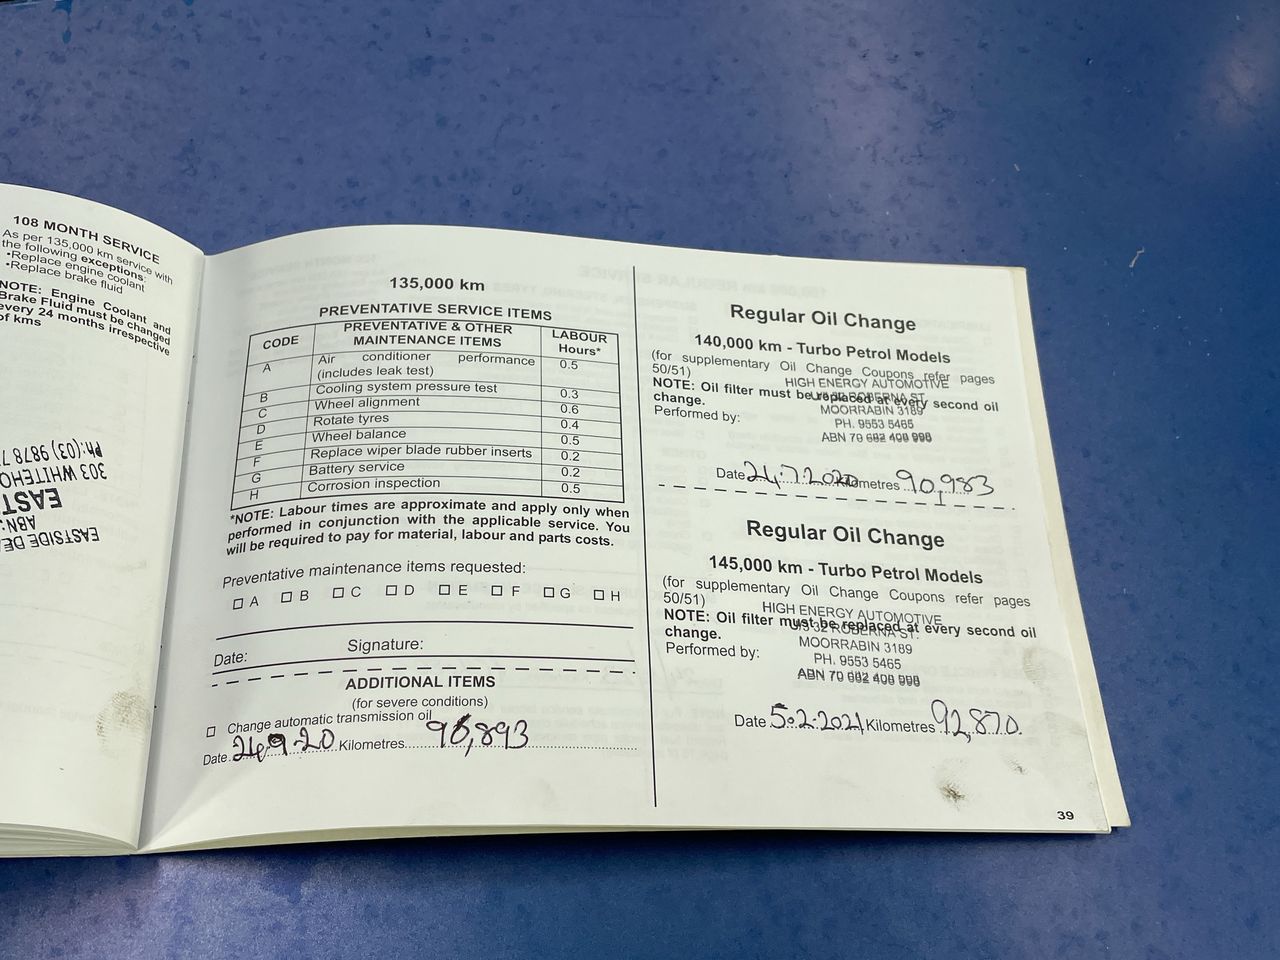 108 MONTH SERVICE
As per 135,000 km service with
the following exceptions:
•Replace engine coolant
•Replace brake fluid
NOTE: Engine Coolant and
Brake Fluid must be changed
every 24 months irrespective
of kms
Ph:(03) 9878
303 WHITEHO
EAST
ABN:
EASTSIDE DE
135,000 km
PREVENTATIVE SERVICE ITEMS
CODE PREVENTATIVE & OTHER MAINTENANCE ITEMS LABOUR Hours*
A Air conditioner performance (includes leak test) 0.5
B Cooling system pressure test 0.3
C Wheel alignment 0.6
D Rotate tyres 0.4
E Wheel balance 0.5
F Replace wiper blade rubber inserts 0.2
G Battery service 0.2
H Corrosion inspection 0.5
*NOTE: Labour times are approximate and apply only when
performed in conjunction with the applicable service. You
will be required to pay for material, labour and parts costs.
Preventative maintenance items requested:
A B C D E F G H
Date: Signature:
ADDITIONAL ITEMS
(for severe conditions)
Change automatic transmission oil
Date 24.9.20 Kilometres 90,893
Regular Oil Change
140,000 km - Turbo Petrol Models
(for supplementary Oil Change Coupons refer pages
50/51)
HIGH ENERGY AUTOMOTIVE
NOTE: Oil filter must be replaced at every second oil
change.
MOORRABIN 3189
Performed by:
PH. 9553 5465
ABN 70 682 408 998
Date 24.7.2020 Kilometres 90,983
Regular Oil Change
145,000 km - Turbo Petrol Models
(for supplementary Oil Change Coupons refer pages
50/51)
HIGH ENERGY AUTOMOTIVE
NOTE: Oil filter must be replaced at every second oil
change.
MOORRABIN 3189
Performed by:
PH. 9553 5465
ABN 70 682 408 998
Date 5.2.2021 Kilometres 92,870
39